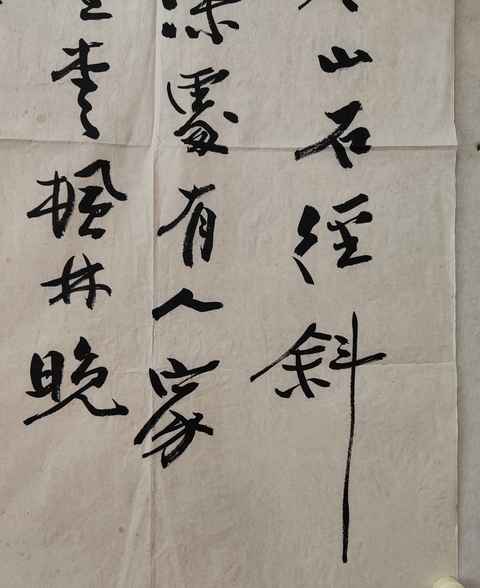 山石徑斜
深處有人家
坐愛楓林晚